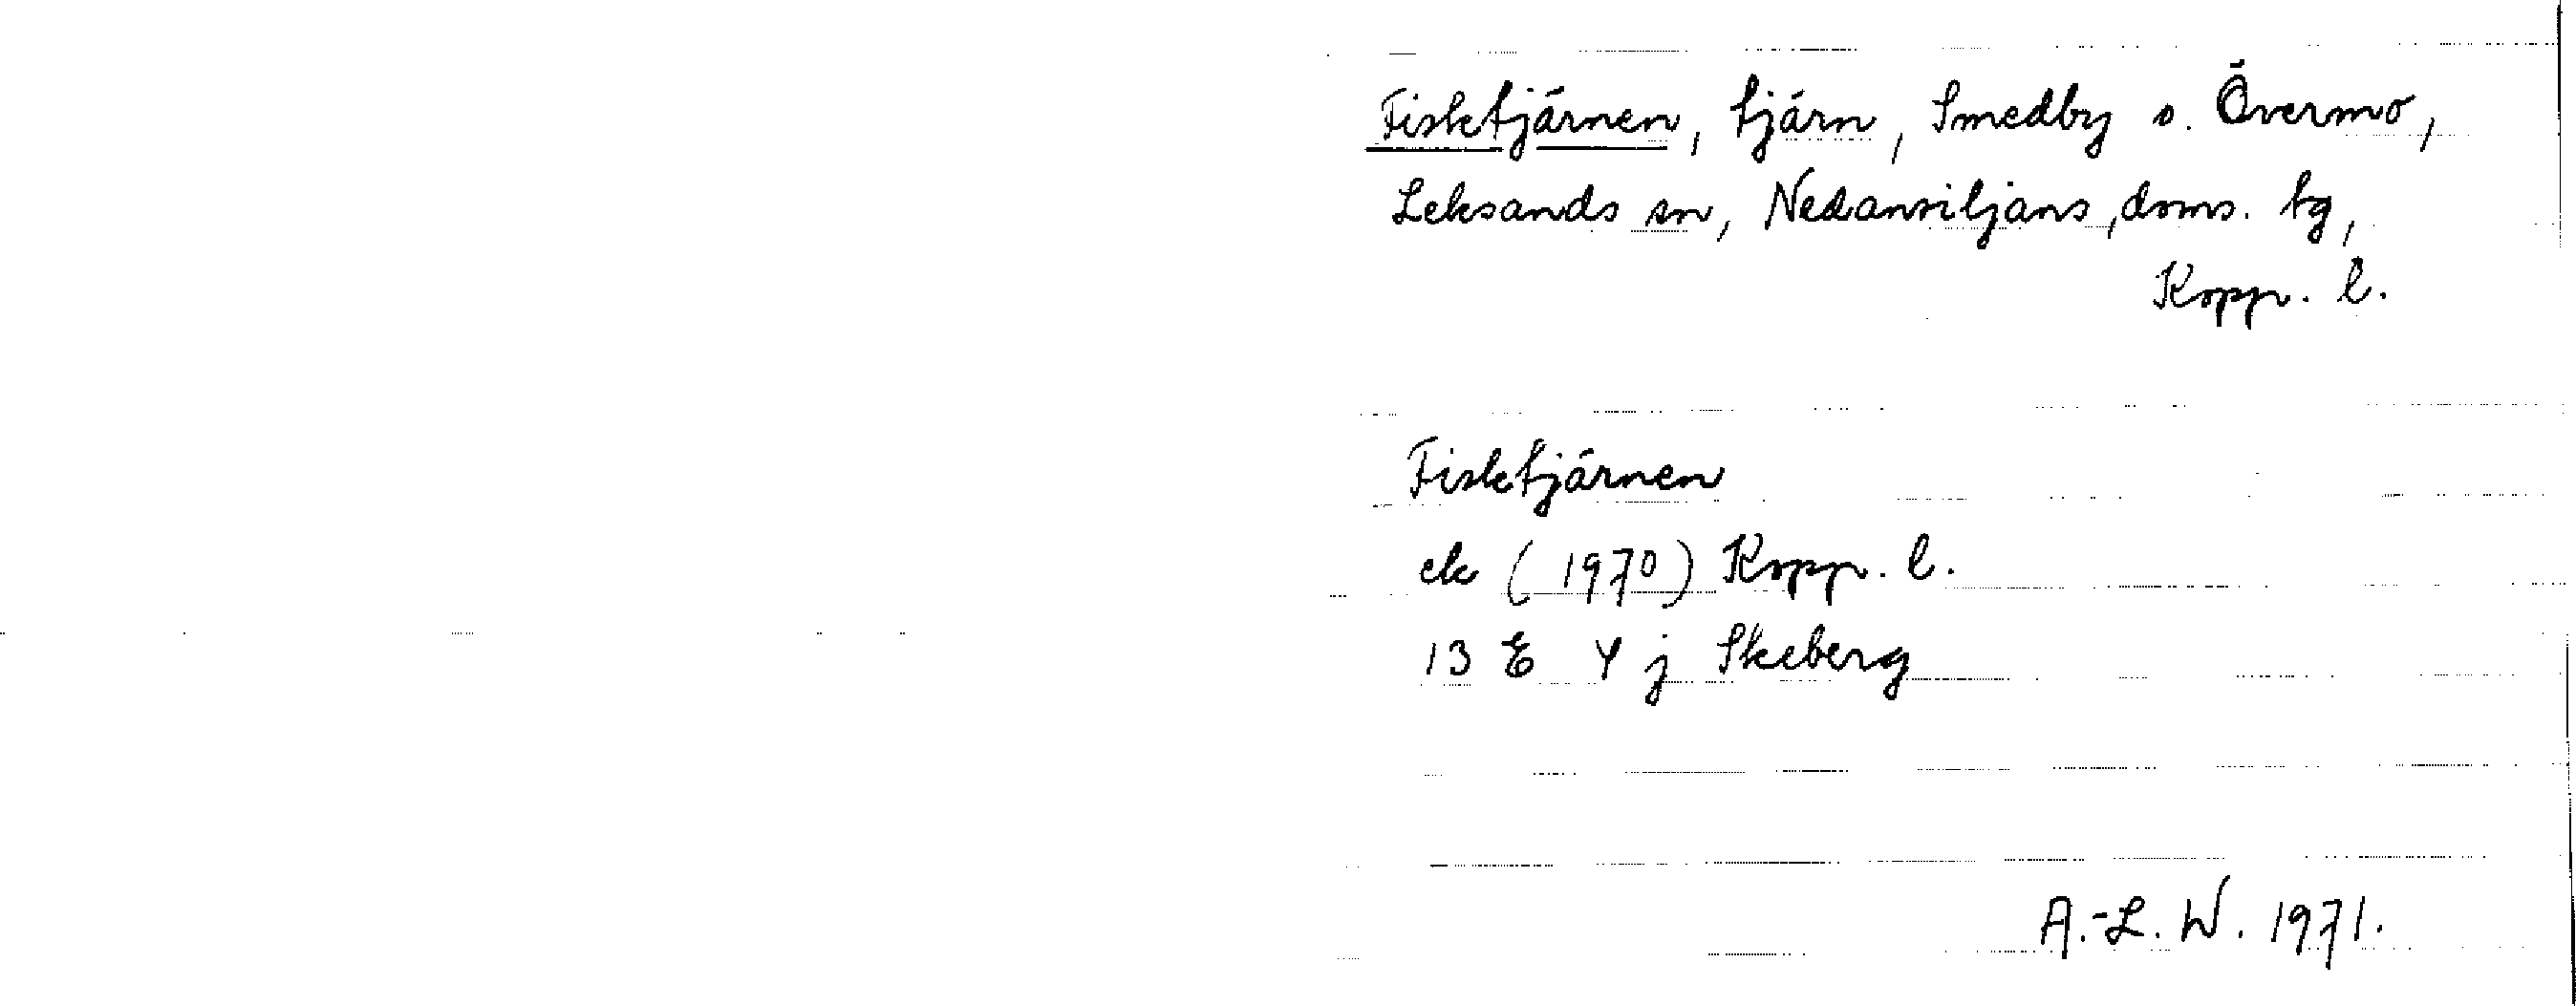 Fisktjärnen, tjärn, Smedby s. Övermo,
Leksands sn, Nedansiljans doms. tg,
Kopp. l.
Fisktjärnen
ek (1970) Kopp. l.
13 E 4 j Skeberg
A.-L. W. 1971.